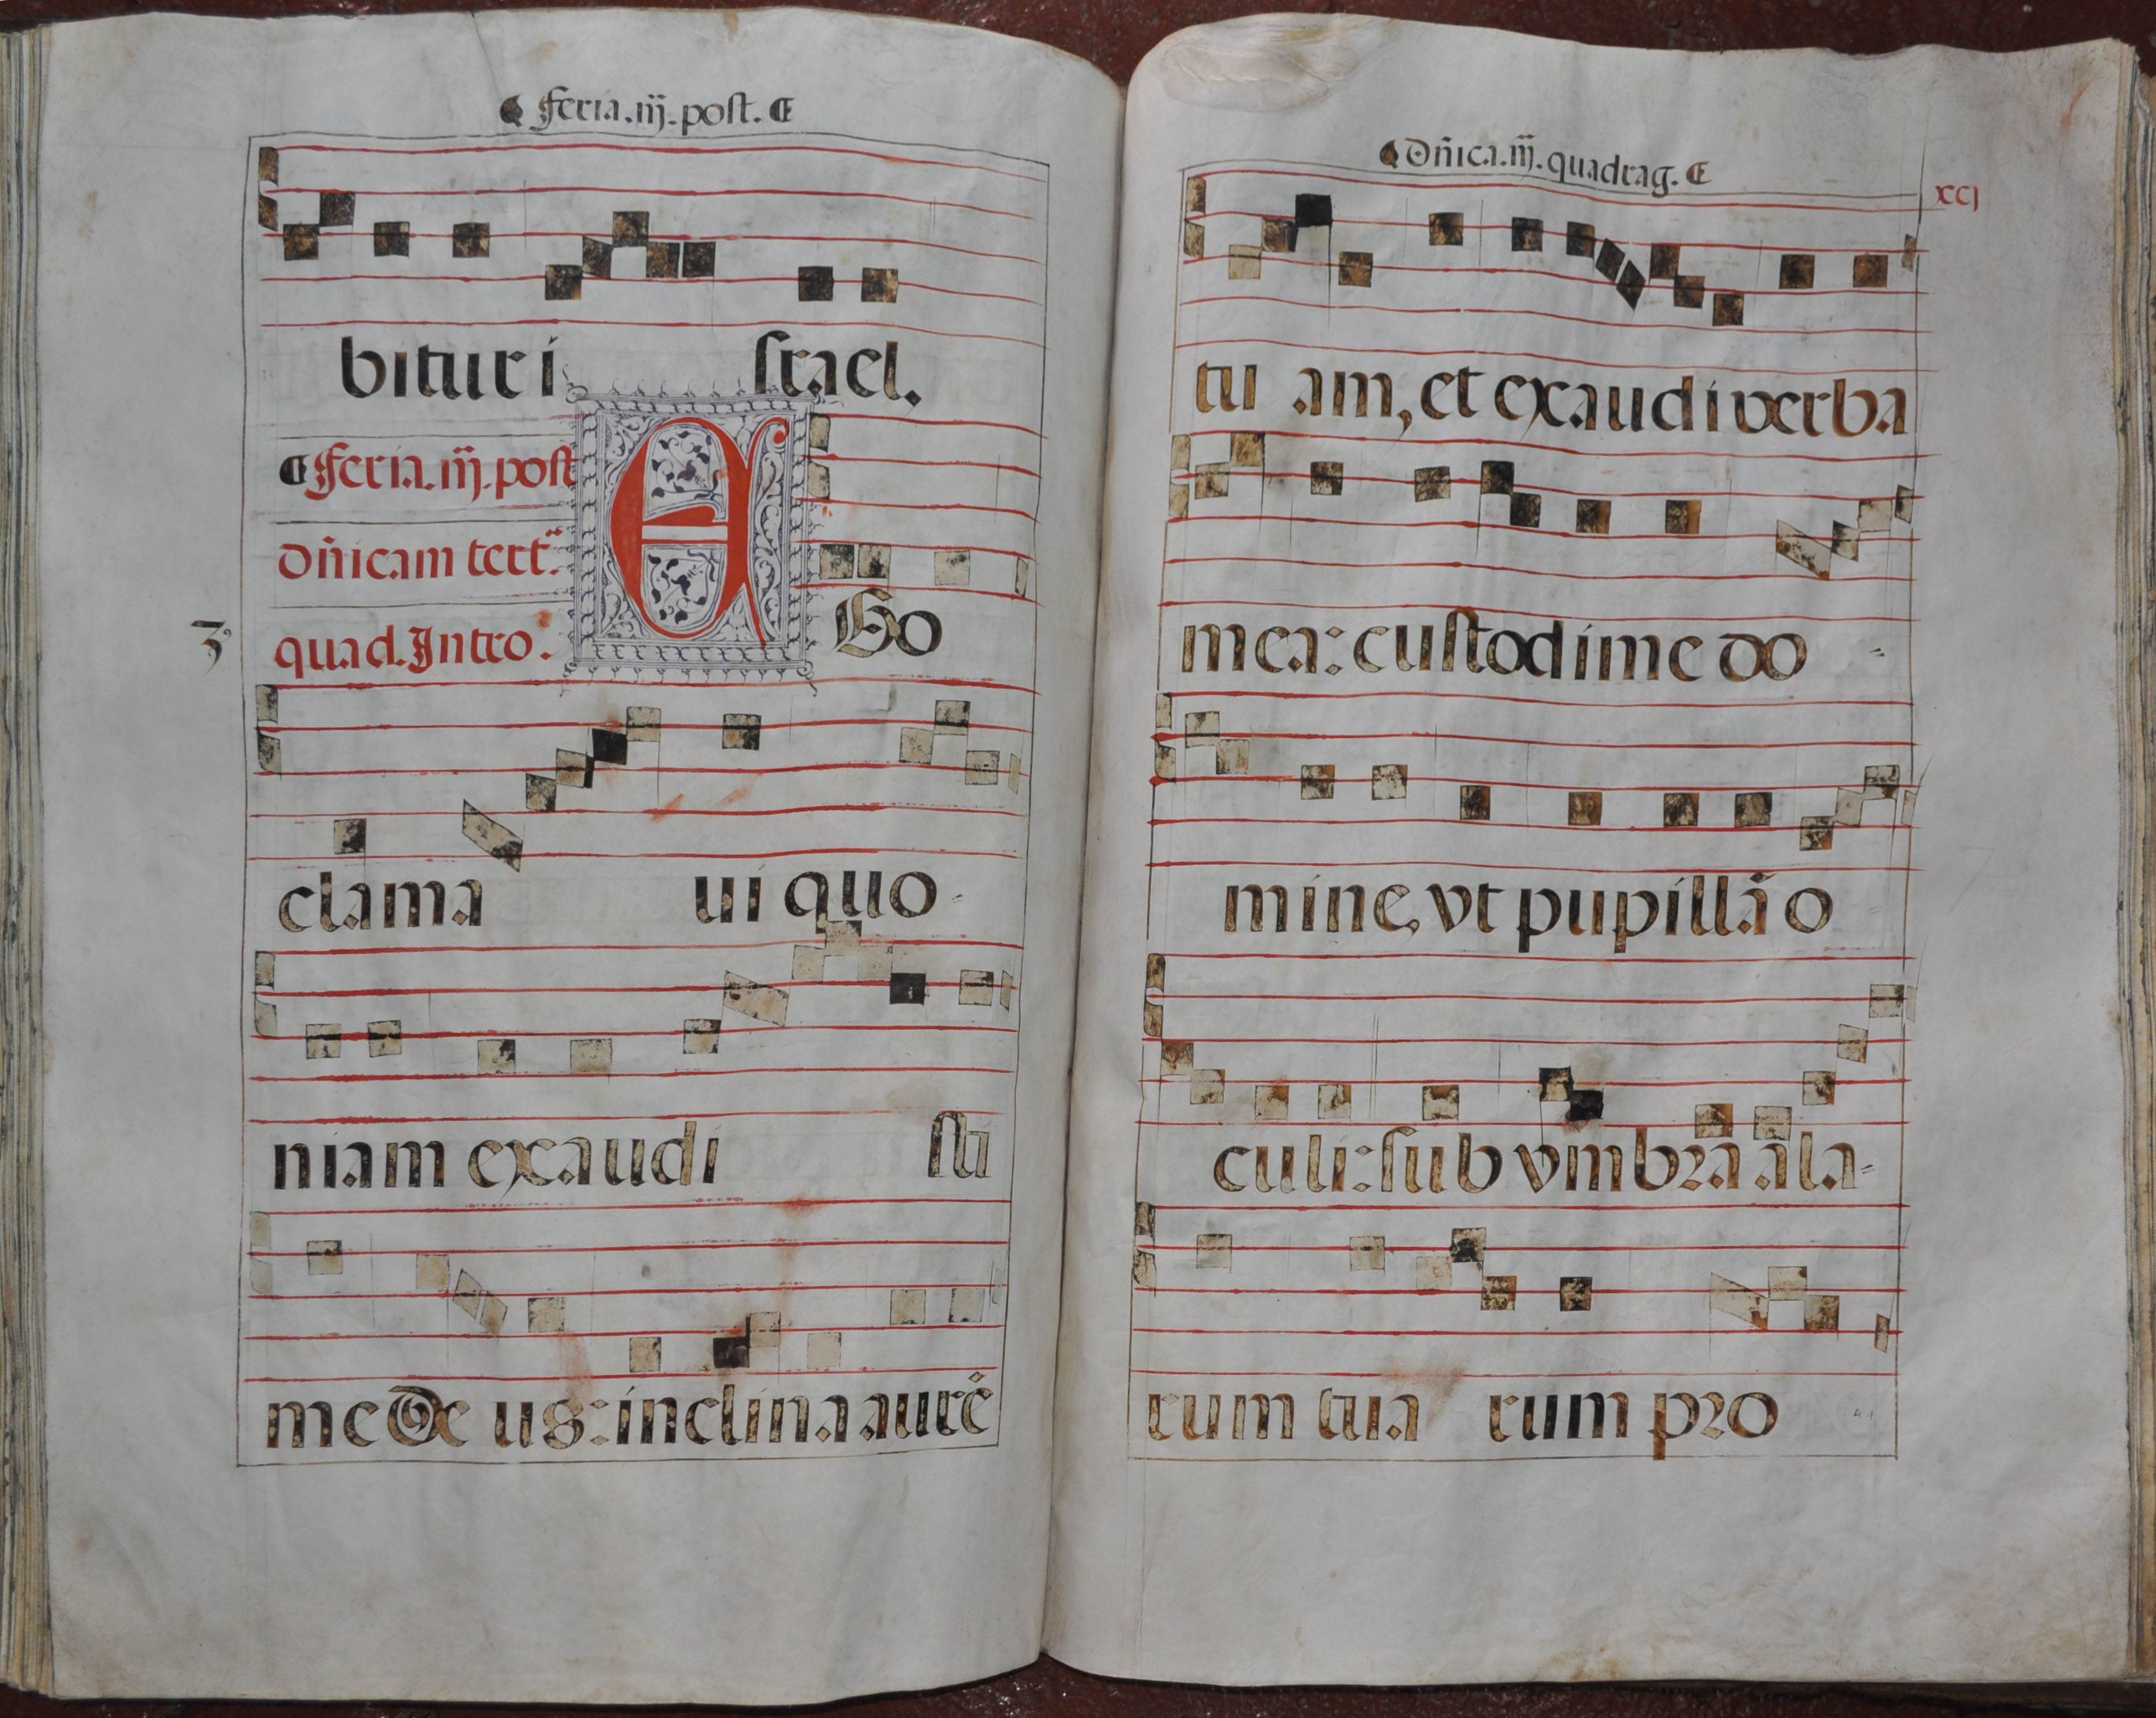 Feria.iij.post.
bitur i srael.
Feria.iij.post
dñicam tert.
quad.Intro.
3
E Go
clama ui quo-
niam exaudi sti
me De us:inclina aurẽ
Dñica.iij.quadrag.
xcj
tu am, et exaudi verba
mea: custodi me do -
mine, vt pupillã o
culi: sub vmbra ala-
rum tua rum pro